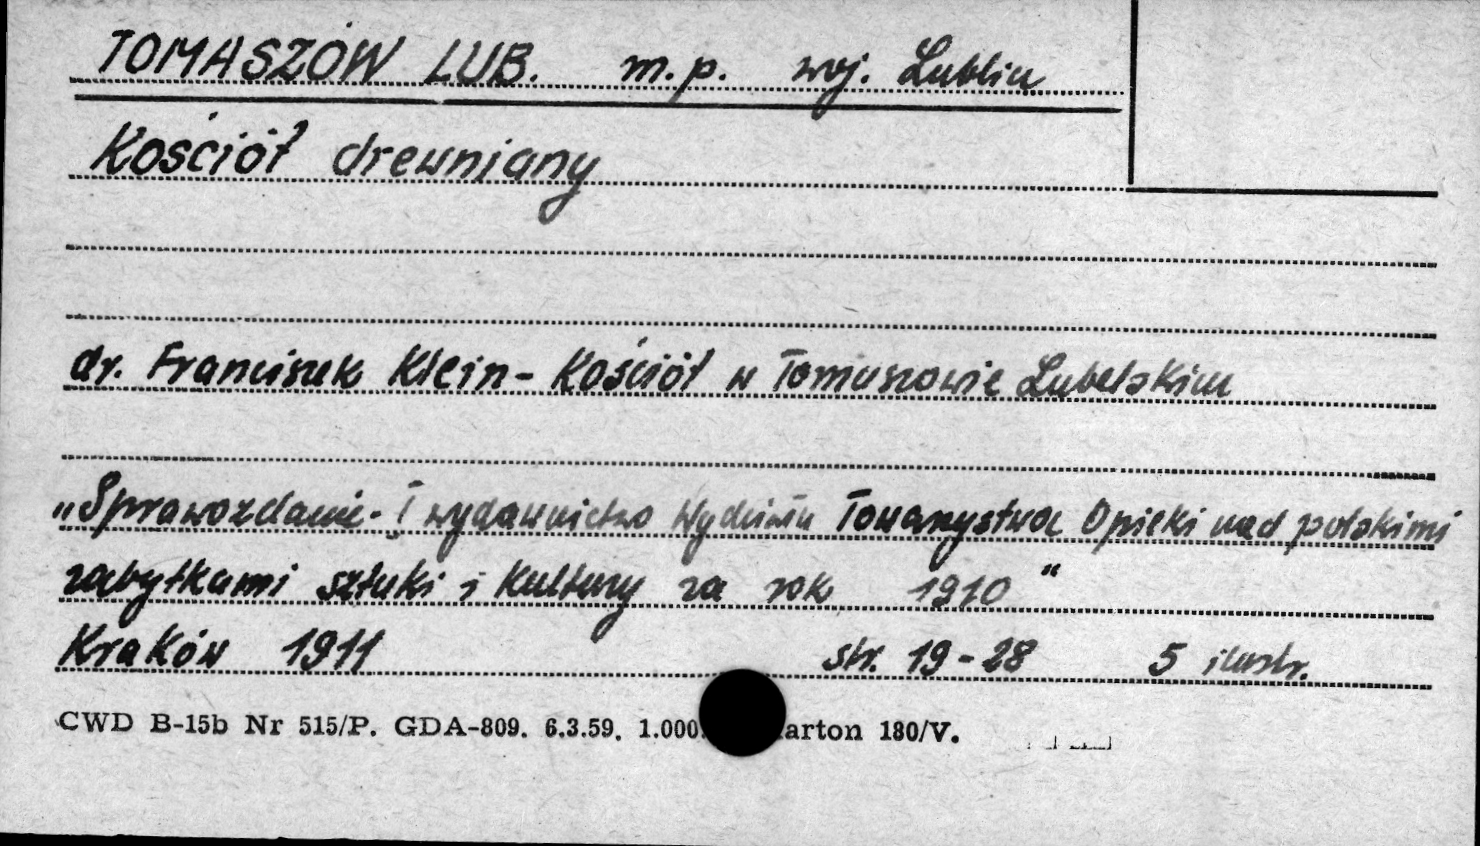 TOMASZÓW LUB. m.p. woj. Lublin
Kościół drewniany
dr. Franciszek Klein - Kościół w Tomaszowie Lubelskim
„Sprawozdanie - I wydawnictwo Wydziału Towarzystwa Opieki nad polskimi
zabytkami sztuki i Kultury za rok 1910"
Kraków 1911 str. 19-28 5 ilustr.
CWD B-15b Nr 515/P. GDA-809. 6.3.59. 1.000. arton 180/V.